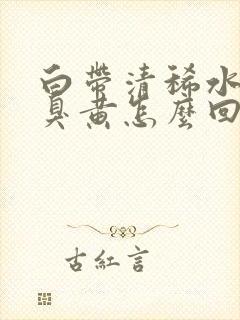 白帶清稀水
臭黃怎麼回
古紅言